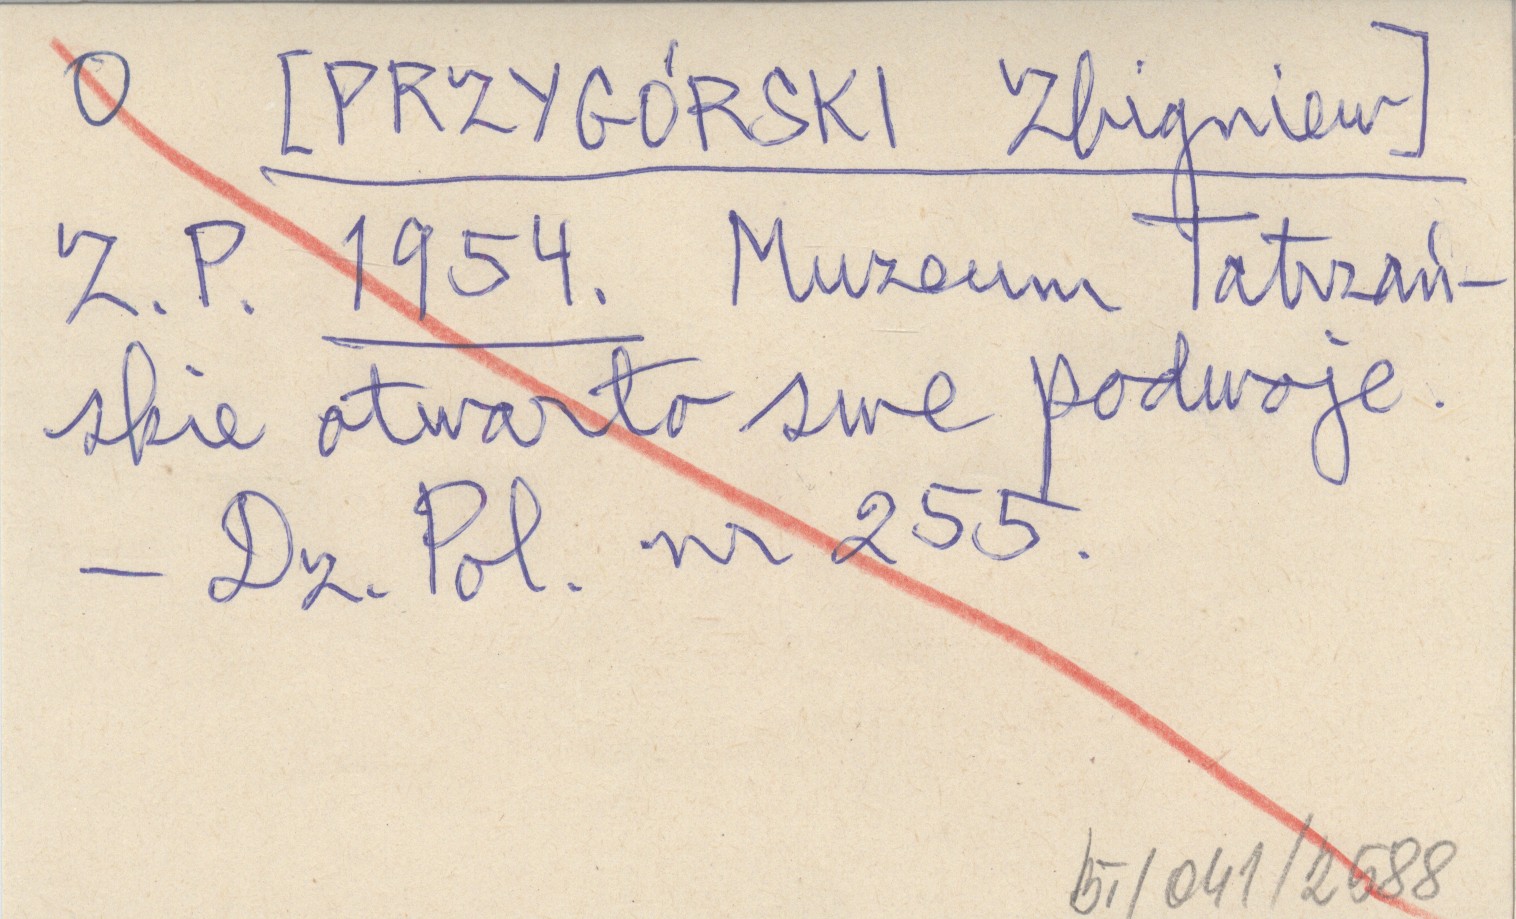 O [PRZYGÓRSKI Zbigniew]
Z.P. 1954. Muzeum Tatrzań-
skie otwarto swe podwoje.
— Dz. Pol. nr 255.
/041/2588